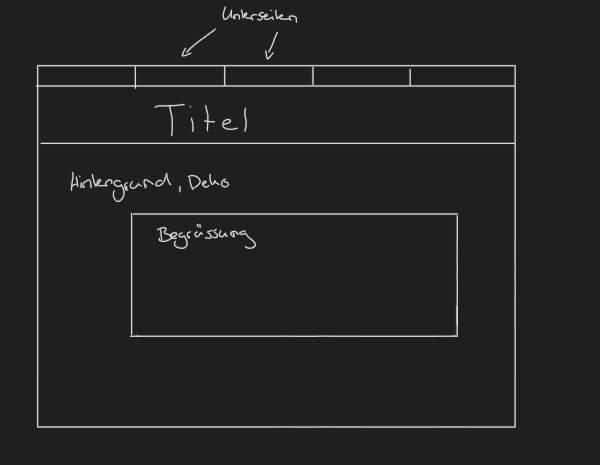 Unterseiten
Titel
Hintergrund, Deko
Begrüssung